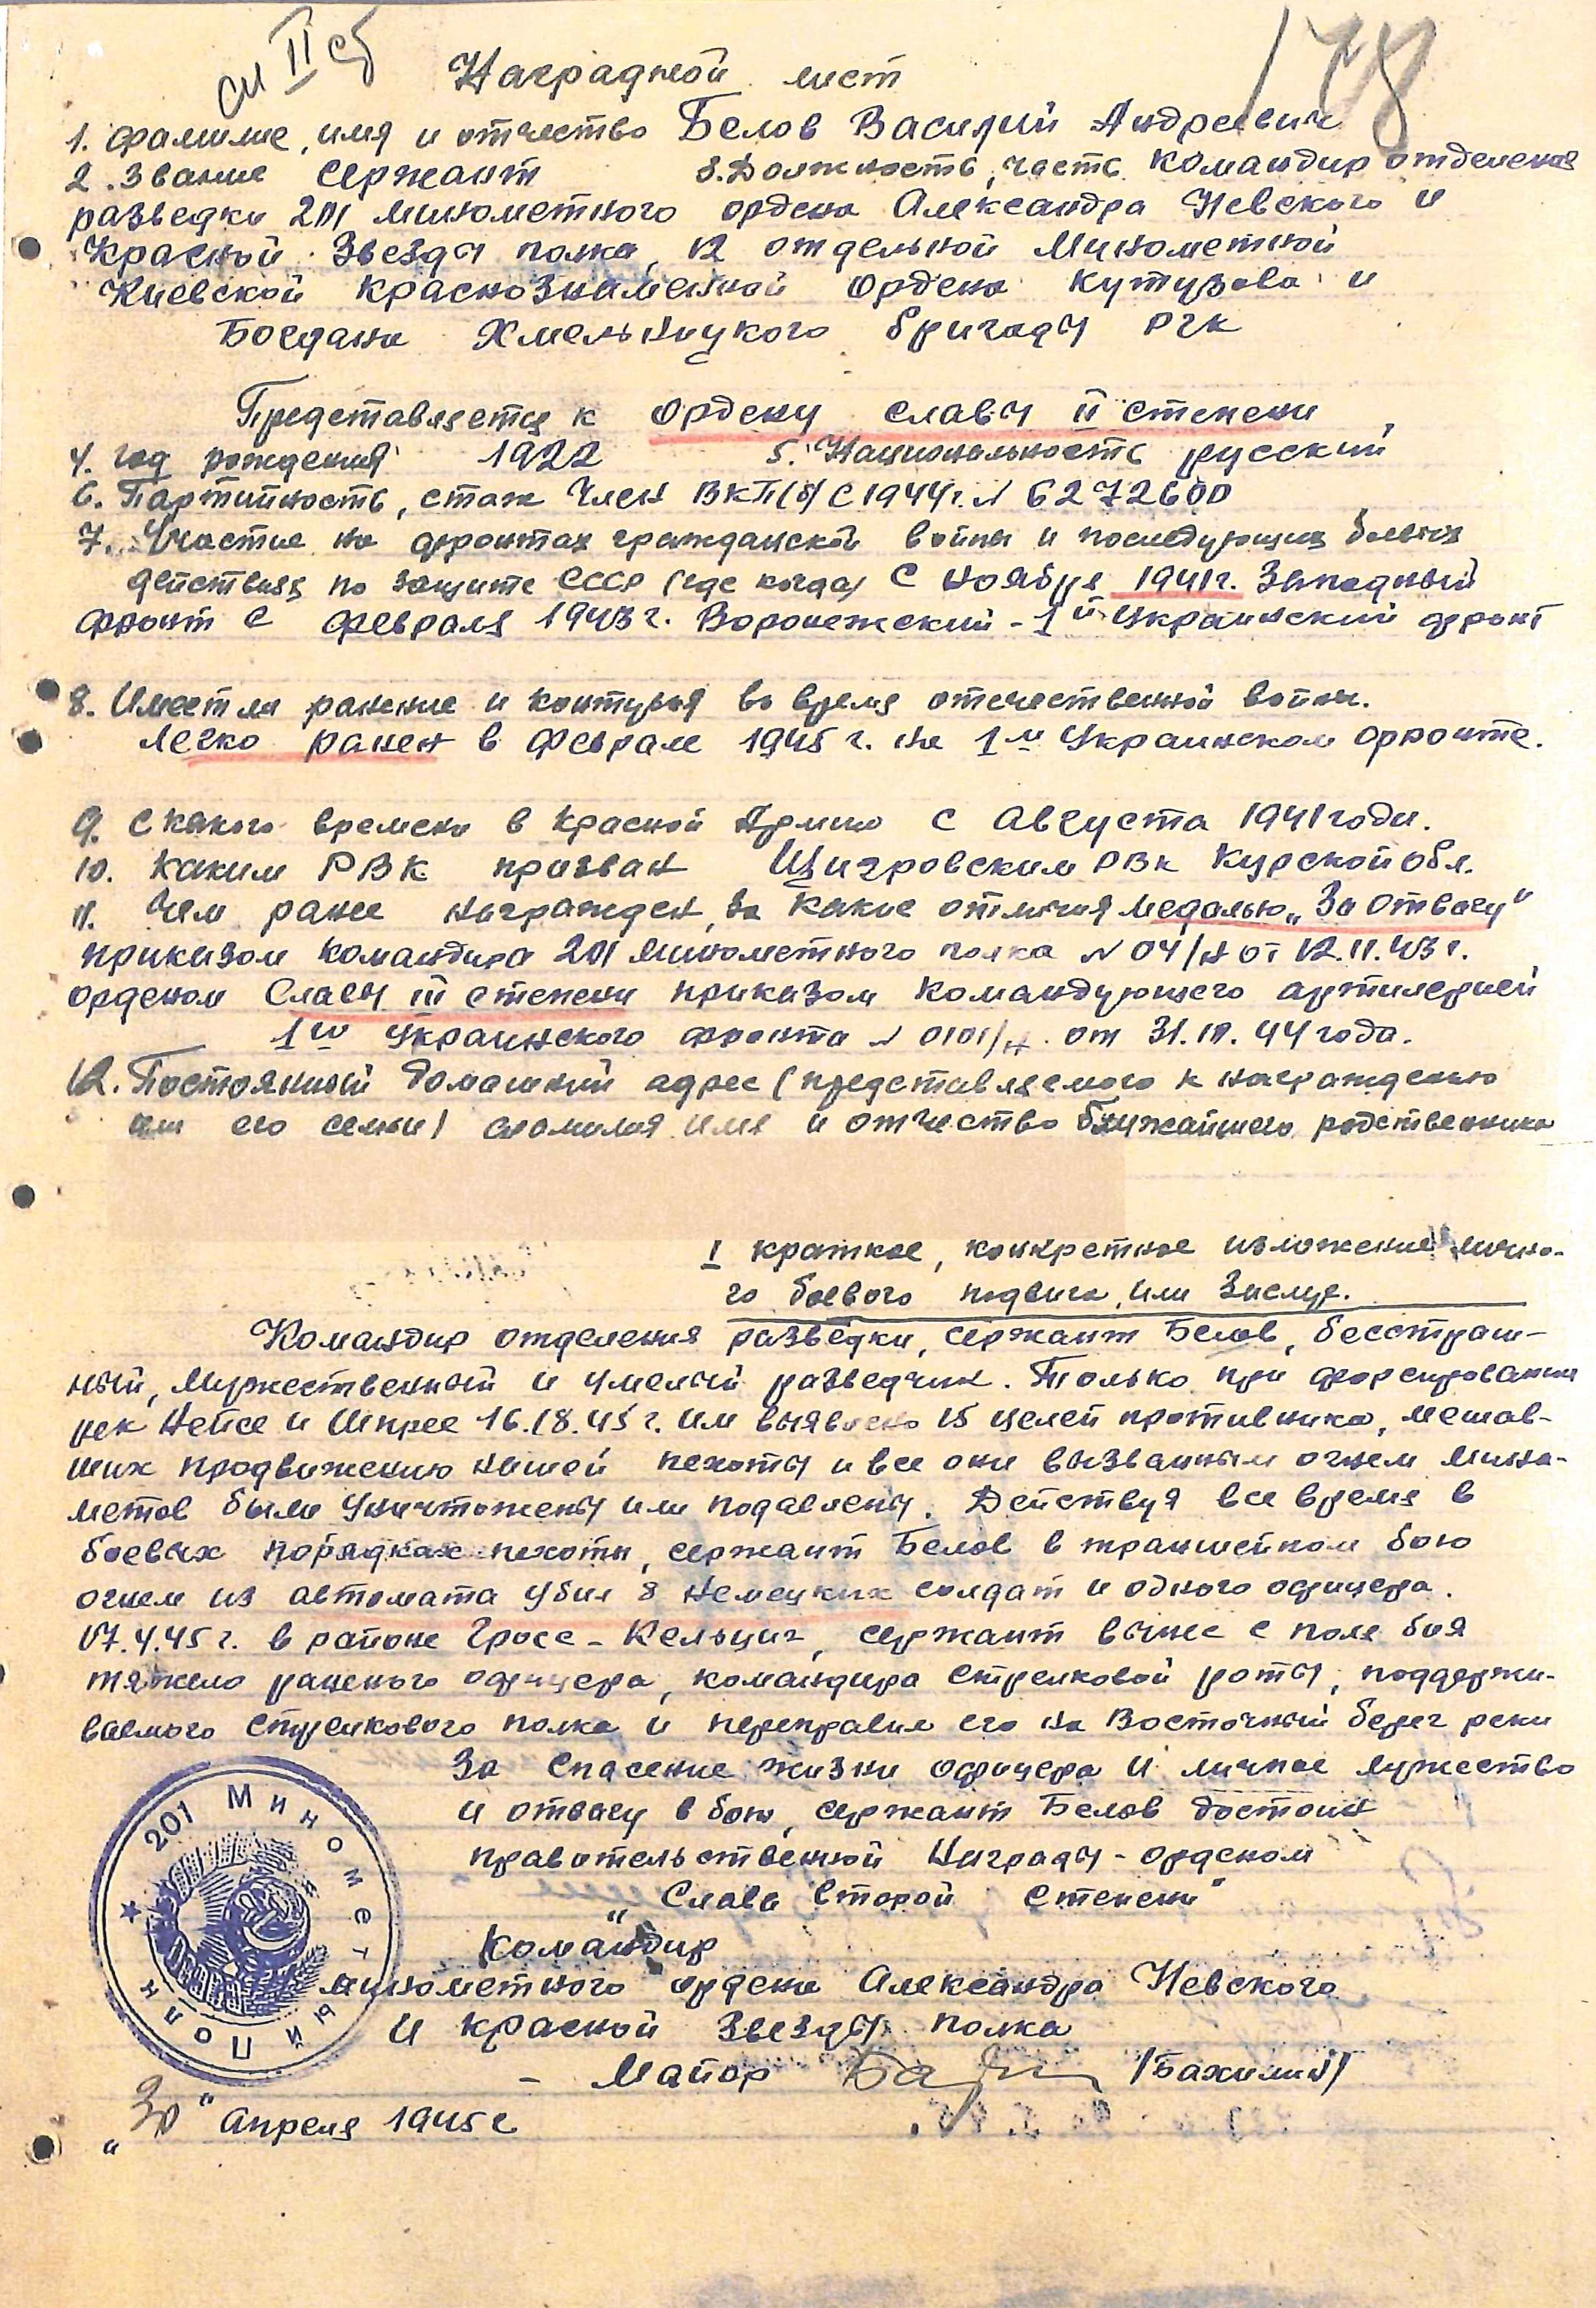 см II сб
178
Наградной лист
1. Фамилие, имя и отчество Белов Василий Андреевич
2. Звание сержант 3. Должность, часть командир отделения
разведки 201 минометного ордена Александра Невского и
Красной Звезды полка, 12 отдельной Минометной
Киевской краснознаменной ордена Кутузова и
Богдана Хмельницкого бригады РГК
Представляется к ордену славы II степени
4. год рождения 1922 5. Национальность русский
6. Партийность, стаж Член ВКП(б) с 1944 г. № 6272600
7. Участие на фронтах гражданской войны и последующих боевых
действиях по защите СССР (где когда) с ноября 1941 г. Западный
фронт с февраля 1943 г. Воронежский - 1й Украинский фронт
8. Имеет ли ранение и контузия во время отечественной войны.
легко ранен в феврале 1945 г. на 1м Украинском фронте.
9. с какого времени в Красной Армии с Августа 1941 года.
10. каким РВК призван Щигровским РВК Курской обл.
11. Чем ранее награжден, за какие отличия медалью „За Отвагу"
приказом командира 201 минометного полка № 04/н от 12.11.43 г.
орденом Славы III степени приказом командующего артилерией
1го Украинского фронта № 0101/н от 31.10.44 года.
12. Постоянный домашний адрес (представляемого к награждению
или его семьи) фамилия имя и отчество ближайшего родственника
I краткое, конкретное изложение лично-
го боевого подвига, или Заслуг.
Командир отделения разведки, сержант Белов, бесстраш-
ный, мужественный и умелый разведчик. Только при форсировании
рек Нейсе и Шпрее 16.18.45 г. им выявлено 15 целей противника, мешав-
ших продвижению нашей пехоты и все они вызванным огнем мино-
метов были уничтожены или подавлены. Действуя все время в
боевых порядках пехоты, сержант Белов в траншейном бою
огнем из автомата убил 8 немецких солдат и одного офицера.
17.4.45 г. в районе Гросс-Кельциг, сержант вынес с поля боя
тяжело раненого офицера, командира стрелковой роты, поддержи-
ваемого стрелкового полка и переправил его на Восточный берег реки
За спасение жизни офицера и личное мужество
и отвагу в бою, сержант Белов достоин
правительственной Награды - орденом
„Славы второй степени"
Командир
минометного ордена Александра Невского
и красной звезды полка
- Майор /Бахилин/
„30" Апреля 1945 г
201 Минометный Полк